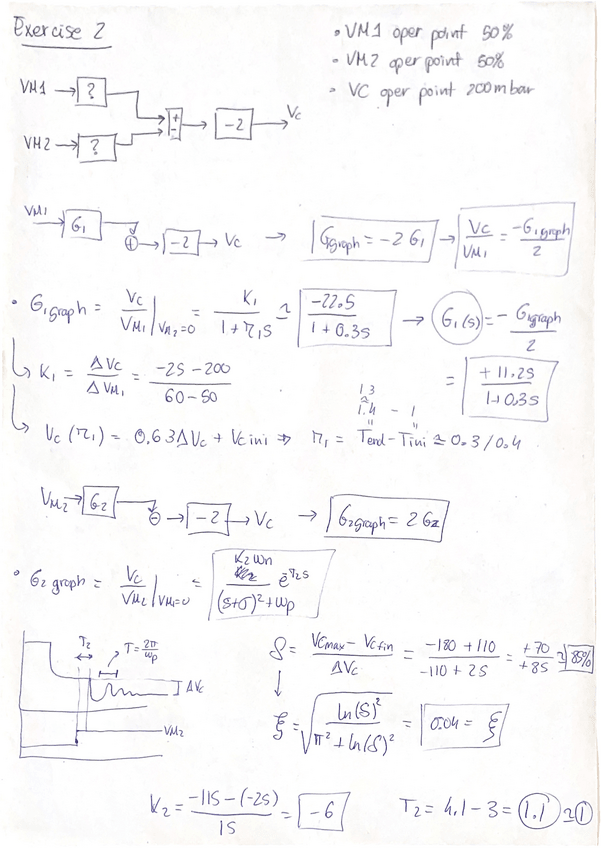 Exercise 2
• VM1 oper point 50%
• VM2 oper point 50%
• VC oper point 200mbar
VM1 → ? 
VM2 → ?
+
-
-2 → Vc
VM1 → G1 → ⊕ → -2 → Vc → Ggraph = -2 G1 → Vc/VM1 = -G1graph/2
• G1graph = Vc/VM1 |VM2=0 = K1/(1+τ1s) ≃ -22.5/(1+0.3s) → G1(s) = -G1graph/2
↳ K1 = ΔVC/ΔVM1 = (-25-200)/(60-50)
= +11.25/(1+0.3s)
1.3
≈
1.4 - 1
↳ Vc(τ1) = 0.63ΔVc + Vcini ⇒ τ1 = Tend-Tini ≅ 0.3/0.4
VM2 → G2 → ⊖ → -2 → Vc → G2graph = 2G2
• G2graph = Vc/VM2 |VM1=0 = K2ωn/((s+σ)²+ωp) e^-T2s
T2
T=2π/ωp
ΔVc
VM2
δ = (VCmax - Vcfin)/ΔVc = (-180+110)/(-110+25) = +70/+85 ≅ 85%
↓
ξ = √(ln(δ)²/(π²+ln(δ)²)) = 0.04 = ξ
K2 = (-115-(-25))/15 = -6
T2 = 4.1-3 = 1.1 ≃ 1